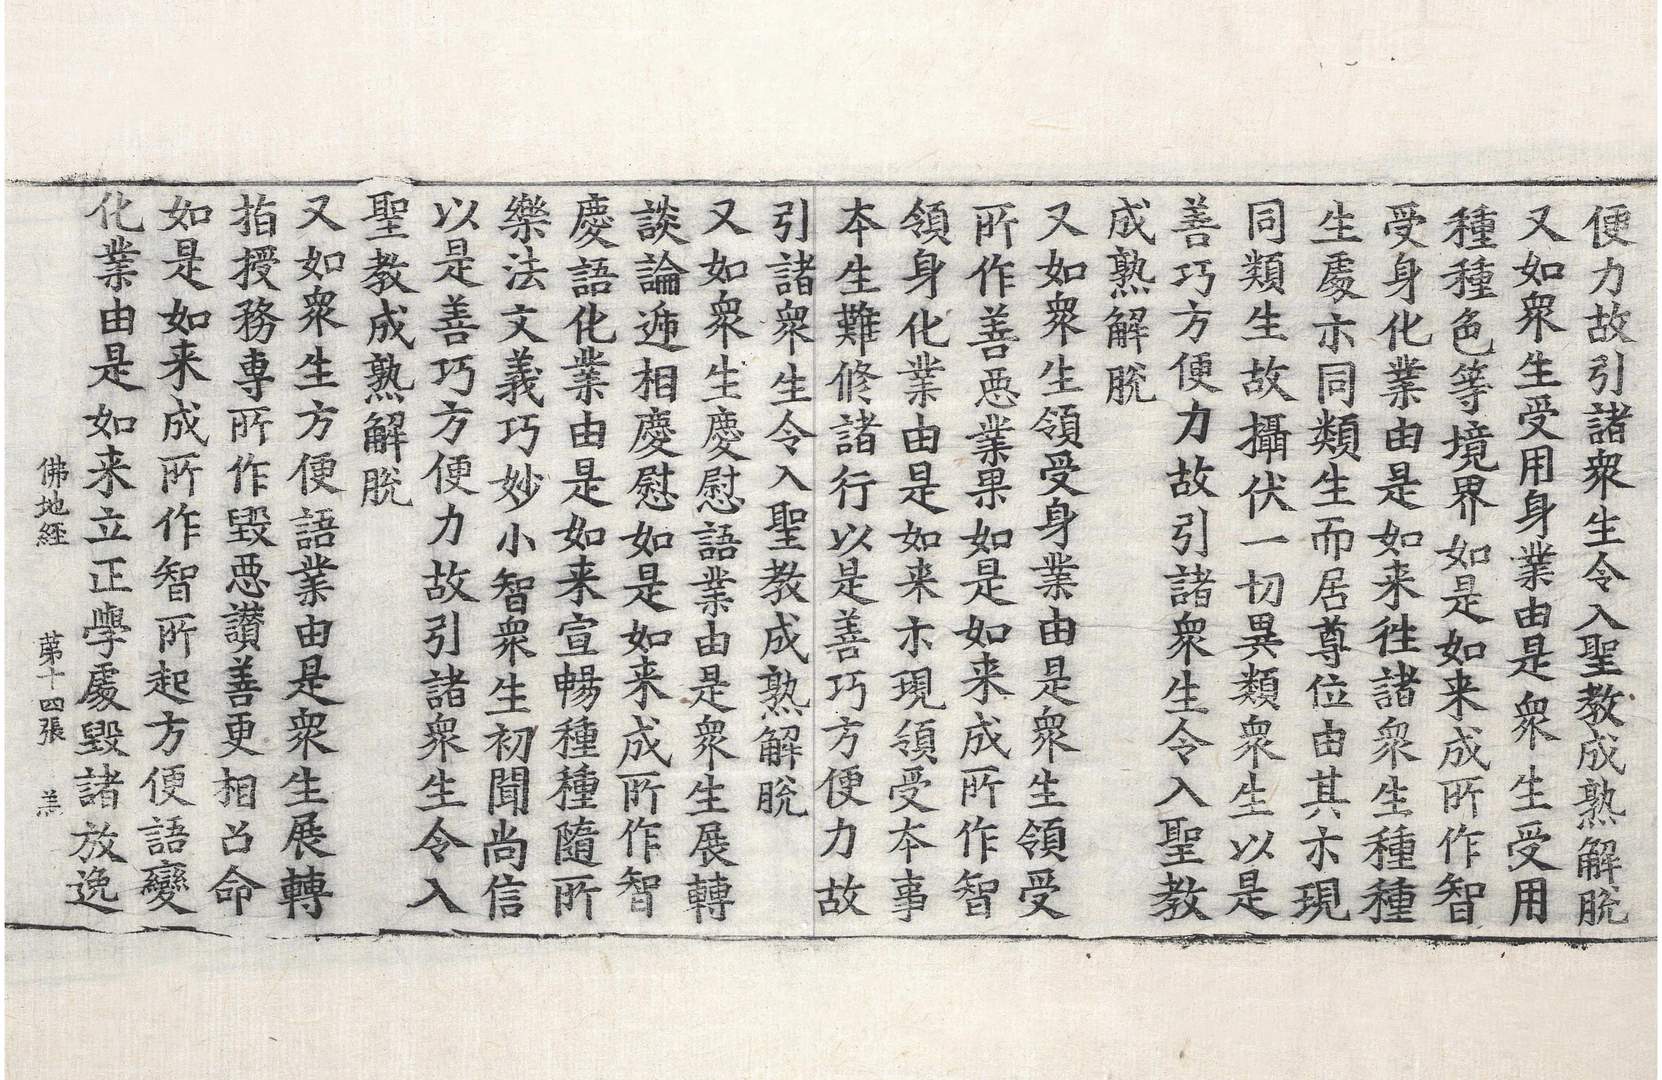 便力故引諸衆生令入聖教成熟解脫
又如衆生受用身業由是衆生受用
種種色等境界如是如来成所作智
受身化業由是如来往諸衆生種種
生處亦同類生而居尊位由其亦現
同類生故攝伏一切異類衆生以是
善巧方便力故引諸衆生令入聖教
成熟解脫
又如衆生領受身業由是衆生領受
所作善惡業果如是如来成所作智
領身化業由是如来亦現領受本事
本生難修諸行以是善巧方便力故
引諸衆生令入聖教成熟解脫
又如衆生慶慰語業由是衆生展轉
談論遞相慶慰如是如来成所作智
慶語化業由是如来宣暢種種隨所
樂法文義巧妙小智衆生初聞尚信
以是善巧方便力故引諸衆生令入
聖教成熟解脫
又如衆生方便語業由是衆生展轉
指授務專所作毀惡讃善更相召命
如是如来成所作智所起方便語變
化業由是如来立正學處毀諸放逸
佛地經 苐十四張 羔